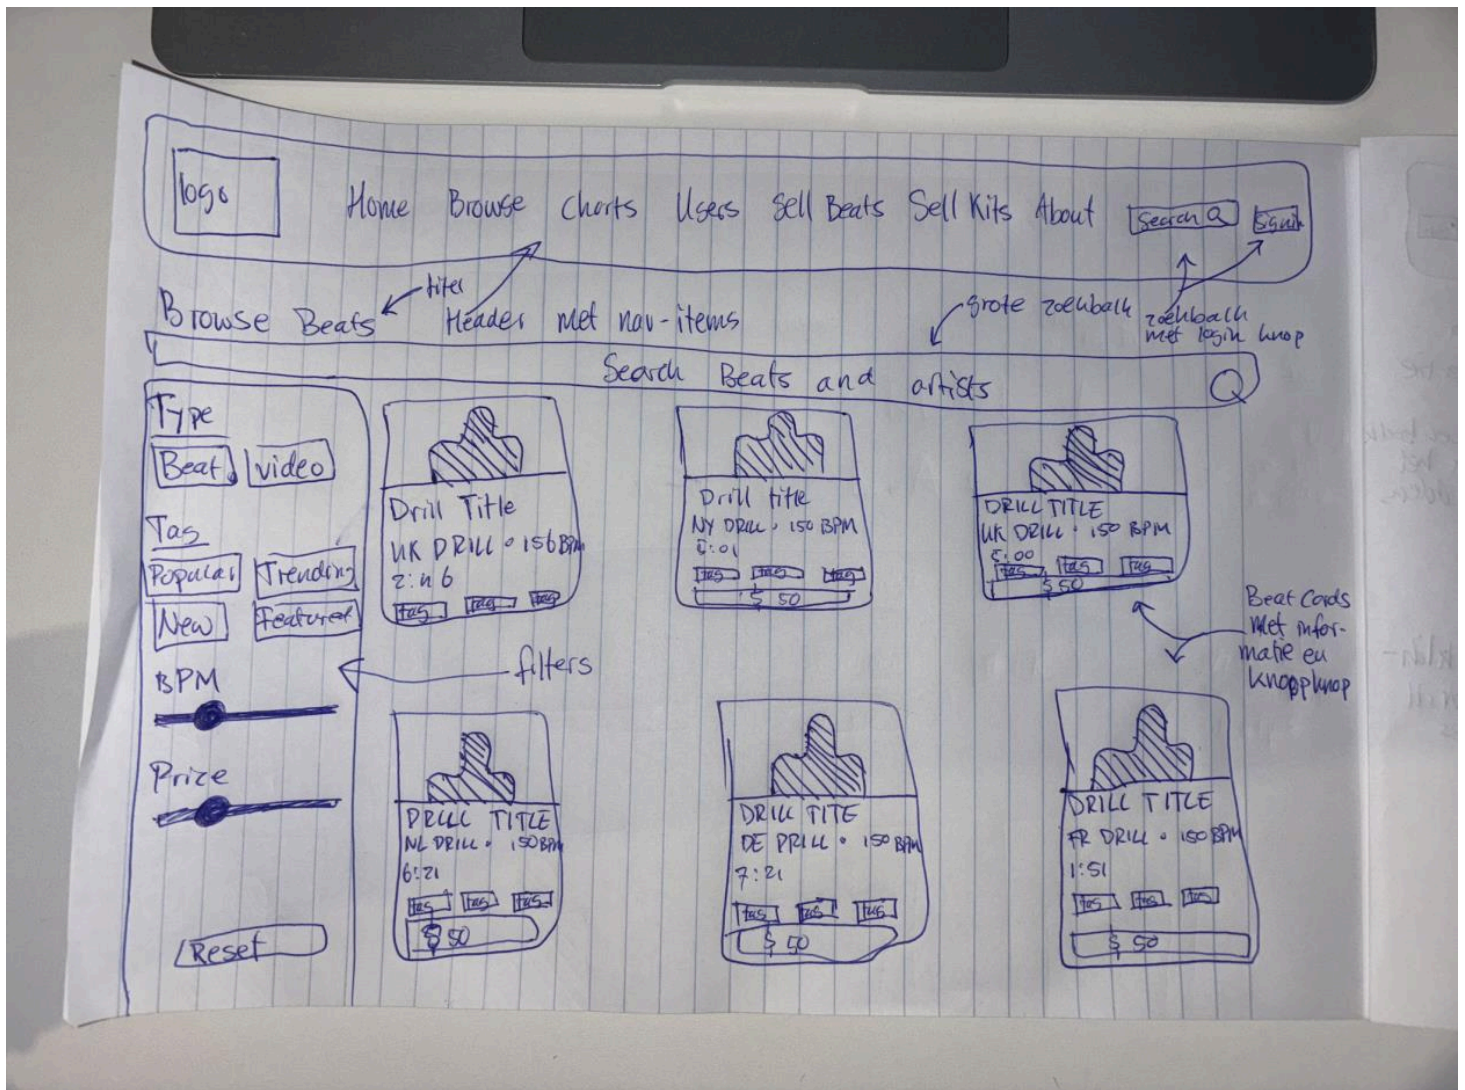 logo
Home Browse Charts Users Sell Beats Sell Kits About Search Signin
titel
Browse Beats
Header met nav-items
grote zoekbalk
zoekbalk
met login knop
Search Beats and artists
Type
Beat video
Tag
Popular Trending
New Featured
BPM
Price
Reset
filters
Drill Title
UK DRILL • 156 BPM
tag tag tag
Drill title
NY DRILL • 150 BPM
tag tag tag
$ 50
DRILL TITLE
UK DRILL • 150 BPM
tag tag tag
$ 50
Beat Cards
met infor-
matie en
DRILL TITLE
NL DRILL • 150 BPM
6:21
tag tag tag
$ 50
DRILL TITE
DE DRILL • 150 BPM
7:21
tag tag tag
$ 50
DRILL TITLE
FR DRILL • 150 BPM
1:51
tag tag tag
$ 50